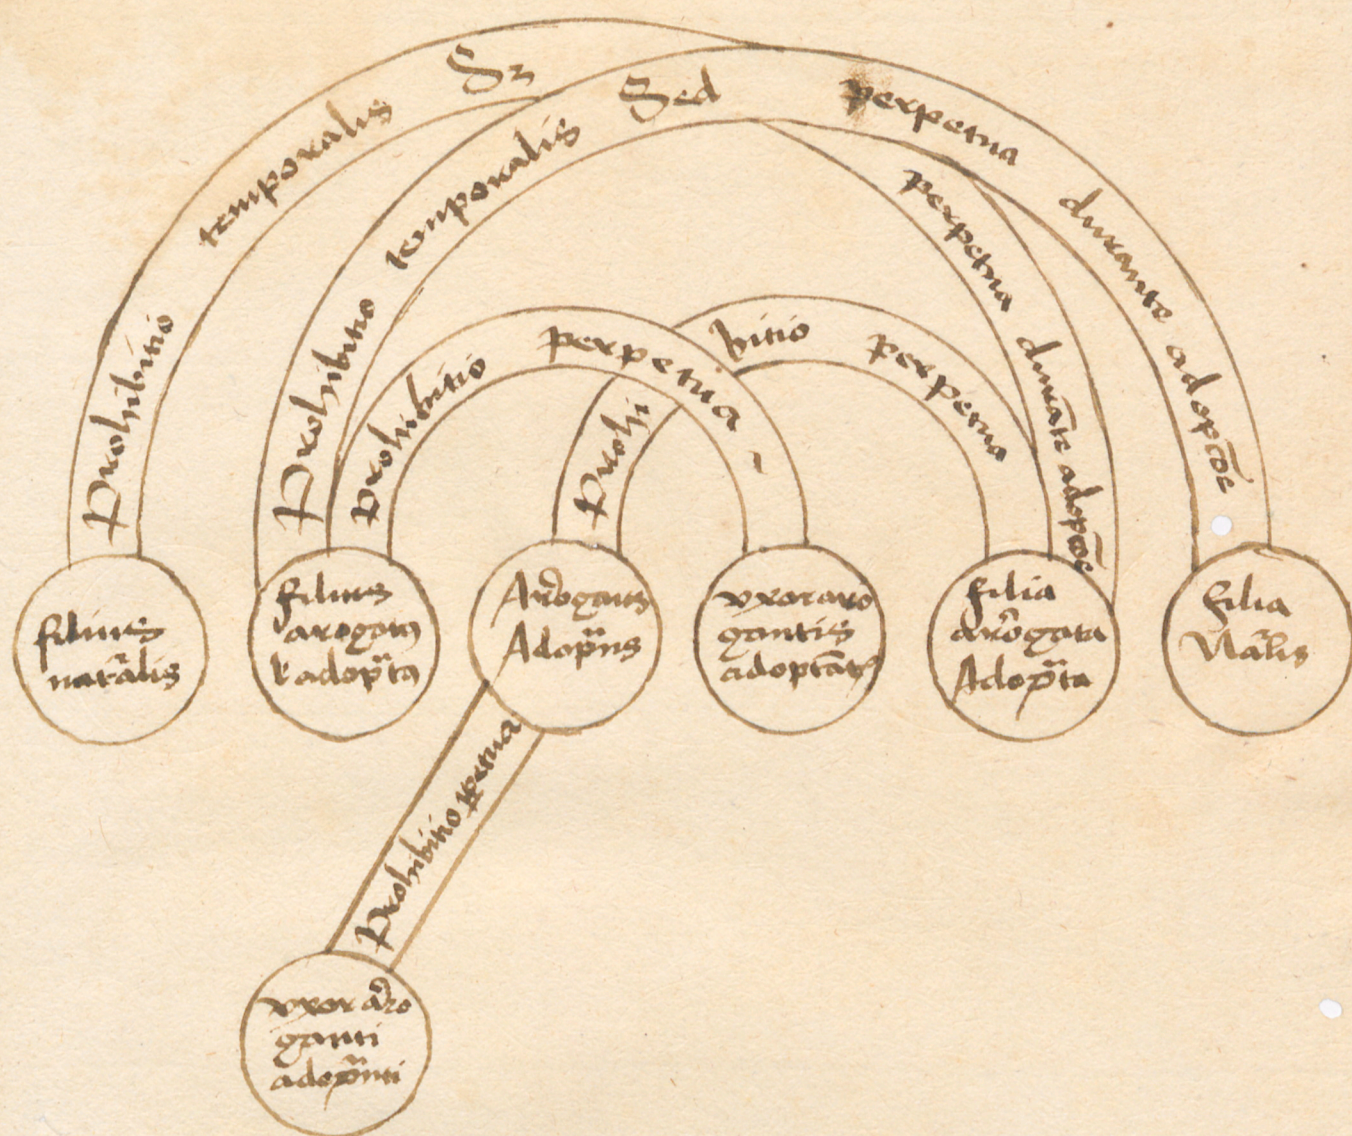 Prohibitio temporalis Sz perpetua durãte adopcõe
Prohibitio temporalis Sed perpetua durante adopcõe
prohibitio perpetua
Prohibitio perpetua
filius
natãlis
filius
arogatꝯ
adopᷓtꝯ
Arrogans
Adopᷓns
vxor aro
gantis
adoptãt
filia
arõgata
Adopᷓta
filia
Nãlis
Prohibitio ꝑpetua
vxor aro
ganti
adopᷓnti